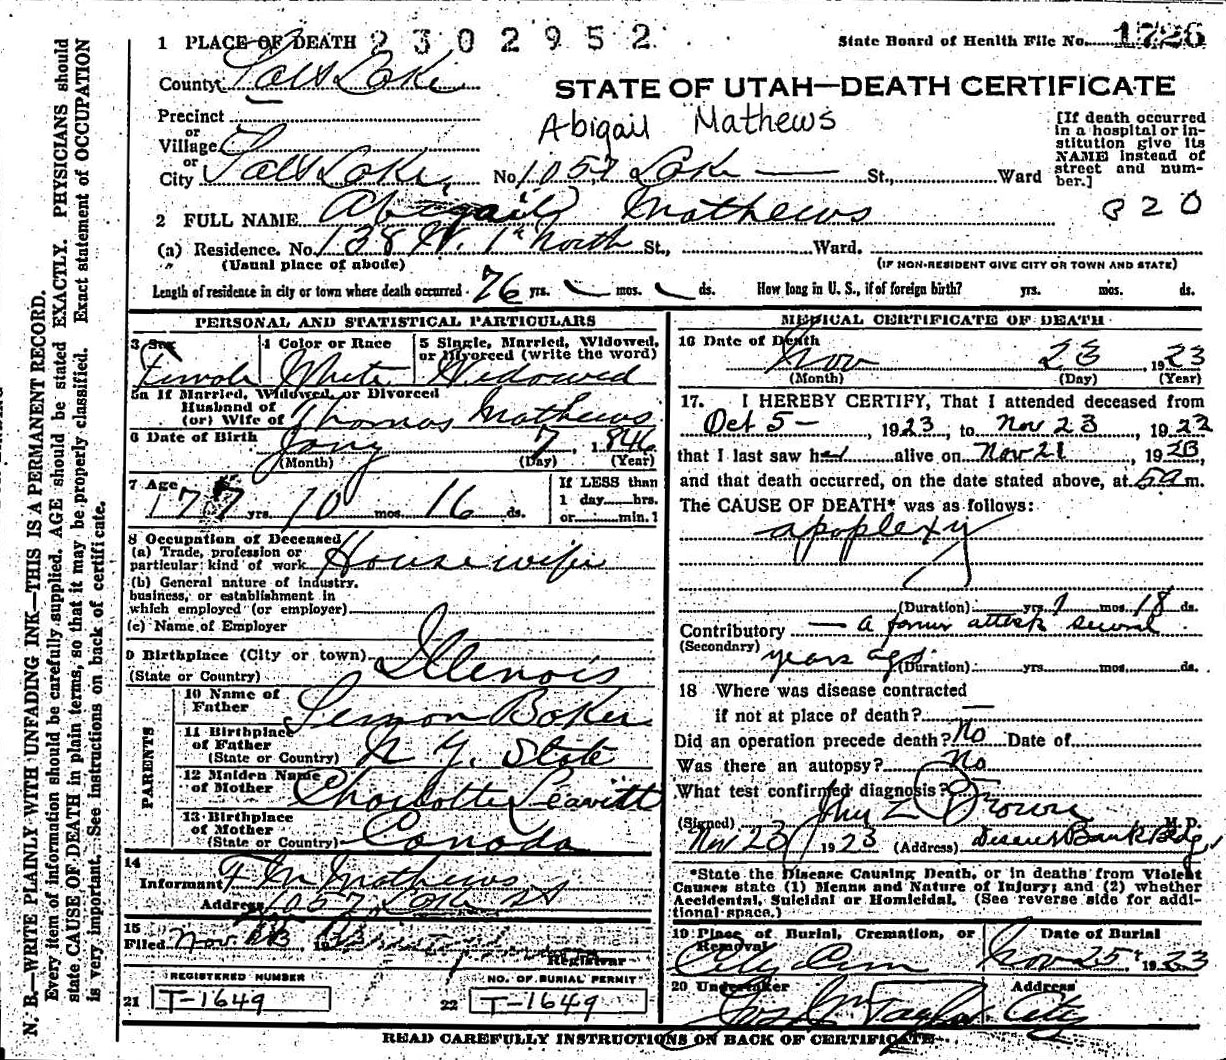 1 PLACE OF DEATH 2302952 State Board of Health File No. 1726
County Salt Lake STATE OF UTAH—DEATH CERTIFICATE
Precinct Abigail Mathews
or
Village
or
City Salt Lake, No. 1057 Lake St., Ward
[If death occurred in a hospital or in-
stitution give its
NAME instead of
street and num-
ber.]
820
2 FULL NAME Abigail Mathews
(a) Residence. No. 138 W. 1st North St., Ward.
(Usual place of abode) (IF NON-RESIDENT GIVE CITY OR TOWN AND STATE)
Length of residence in city or town where death occurred 76 yrs. mos. ds. How long in U. S., if of foreign birth? yrs. mos. ds.
PERSONAL AND STATISTICAL PARTICULARS
3 Sex 4 Color or Race 5 Single, Married, Widowed,
or Divorced (write the word)
Female White Widowed
5a If Married, Widowed, or Divorced
Husband of
(or) Wife of Thomas Mathews
6 Date of Birth Jany 7, 1846
(Month) (Day) (Year)
7 Age 77 yrs. 10 mos. 16 ds.
If LESS than
1 day hrs.
or min.
8 Occupation of Deceased
(a) Trade, profession or
particular kind of work Housewife
(b) General nature of industry,
business, or establishment in
which employed (or employer)
(c) Name of Employer
9 Birthplace (City or town)
(State or Country) Illinois
PARENTS
10 Name of
Father Simon Baker
11 Birthplace
of Father
(State or Country) N. Y. State
12 Maiden Name
of Mother Charlotte Leavitt
13 Birthplace
of Mother
(State or Country) Canada
14
Informant F M Mathews
Address 1057 Lake St
15
Filed Nov 23
Registrar
REGISTERED NUMBER NO. OF BURIAL PERMIT
21 T-1649 22 T-1649
MEDICAL CERTIFICATE OF DEATH
16 Date of Death
Nov 23, 1923
(Month) (Day) (Year)
17. I HEREBY CERTIFY, That I attended deceased from
Oct 5-, 1923, to Nov 23, 1923
that I last saw her alive on Nov 21, 1923,
and that death occurred, on the date stated above, at 5a m.
The CAUSE OF DEATH* was as follows:
apoplexy
(Duration) yrs. 1 mos. 18 ds.
Contributory — a former attack several
(Secondary)
years ago. (Duration) yrs. mos. ds.
18 Where was disease contracted
if not at place of death? —
Did an operation precede death? No Date of
Was there an autopsy? No
What test confirmed diagnosis? —
(Signed) John Z Brown M. D.
Nov 23, 1923 (Address) Deseret Bank Bldg.
*State the Disease Causing Death, or in deaths from Violent
Causes state (1) Means and Nature of Injury; and (2) whether
Accidental, Suicidal or Homicidal. (See reverse side for addi-
tional space.)
19 Place of Burial, Cremation, or Date of Burial
Removal
City Cem Nov 25, 1923
20 Undertaker Address
Jos Wm Taylor City
READ CAREFULLY INSTRUCTIONS ON BACK OF CERTIFICATE
N. B.—WRITE PLAINLY WITH UNFADING INK—THIS IS A PERMANENT RECORD.
Every item of information should be carefully supplied. AGE should be stated EXACTLY. PHYSICIANS should
state CAUSE OF DEATH in plain terms, so that it may be properly classified. Exact statement of OCCUPATION
is very important. See instructions on back of certificate.